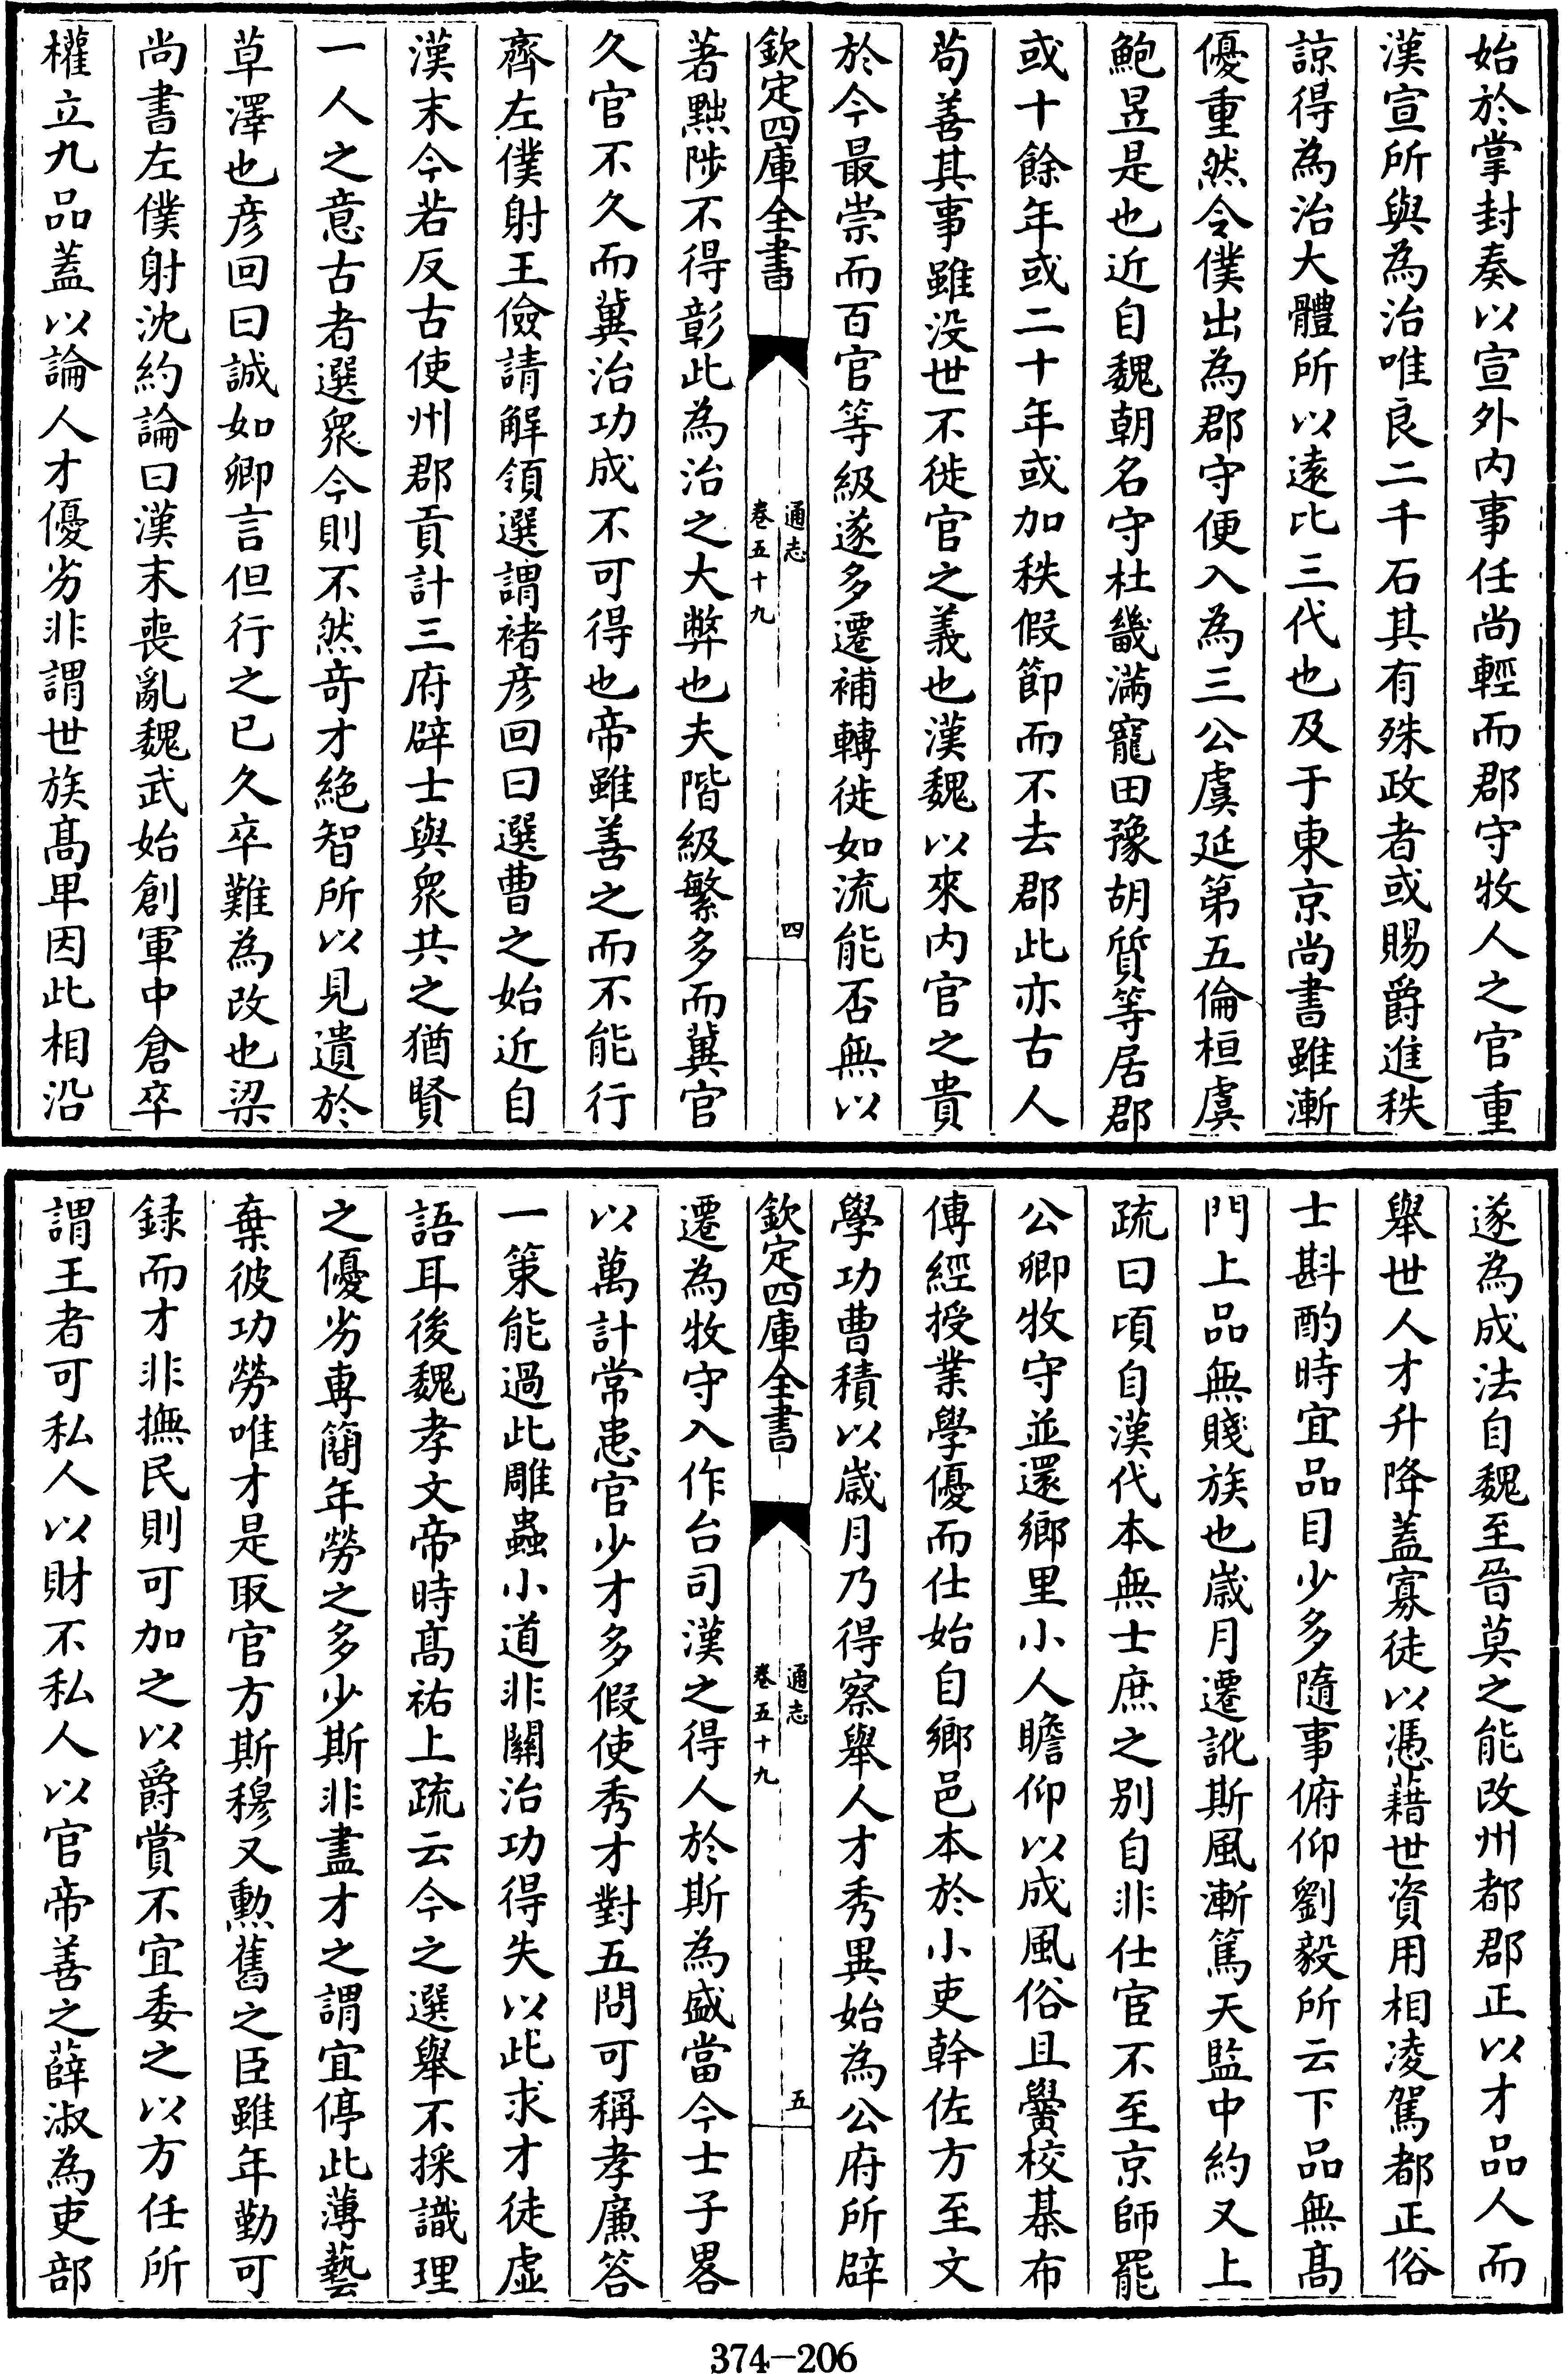 始於掌封奏以宣外内事任尚輕而郡守牧人之官重
漢宣所與為治唯良二千石其有殊政者或賜爵進秩
諒得為治大體所以遠比三代也及于東京尚書雖漸
優重然令僕出為郡守便入為三公虞延第五倫桓虞
鮑昱是也近自魏朝名守杜畿滿寵田豫胡質等居郡
或十餘年或二十年或加秩假節而不去郡此亦古人
苟善其事雖没世不徙官之義也漢魏以來内官之貴
於今最崇而百官等級遂多遷補轉徙如流能否無以
欽定四庫全書
通志
卷五十九
四
著黜陟不得彰此為治之大弊也夫階級繁多而冀官
久官不久而冀治功成不可得也帝雖善之而不能行
齊左僕射王儉請解領選謂禇彦回曰選曹之始近自
漢末今若反古使州郡貢計三府辟士與衆共之猶賢
一人之意古者選衆今則不然竒才絶智所以見遺於
草澤也彦回曰誠如卿言但行之已久卒難為改也梁
尚書左僕射沈約論曰漢末喪亂魏武始創軍中倉卒
權立九品蓋以論人才優劣非謂世族髙卑因此相沿
遂為成法自魏至晉莫之能改州都郡正以才品人而
舉世人才升降蓋寡徒以憑藉世資用相凌駕都正俗
士斟酌時宜品目少多隨事俯仰劉毅所云下品無髙
門上品無賤族也歲月遷訛斯風漸篤天監中約又上
疏曰頃自漢代本無士庶之别自非仕宦不至京師罷
公卿牧守並還鄉里小人瞻仰以成風俗且黌校棊布
傳經授業學優而仕始自鄉邑本於小吏幹佐方至文
學功曹積以歲月乃得察舉人才秀異始為公府所辟
欽定四庫全書
通志
卷五十九
五
遷為牧守入作台司漢之得人於斯為盛當今士子畧
以萬計常患官少才多假使秀才對五問可稱孝廉答
一策能過此雕蟲小道非關治功得失以此求才徒虛
語耳後魏孝文帝時髙祐上疏云今之選舉不採識理
之優劣專簡年勞之多少斯非盡才之謂宜停此薄藝
棄彼功勞唯才是取官方斯穆又勲舊之臣雖年勤可
録而才非撫民則可加之以爵賞不宜委之以方任所
謂王者可私人以財不私人以官帝善之薛淑為吏部
374-206